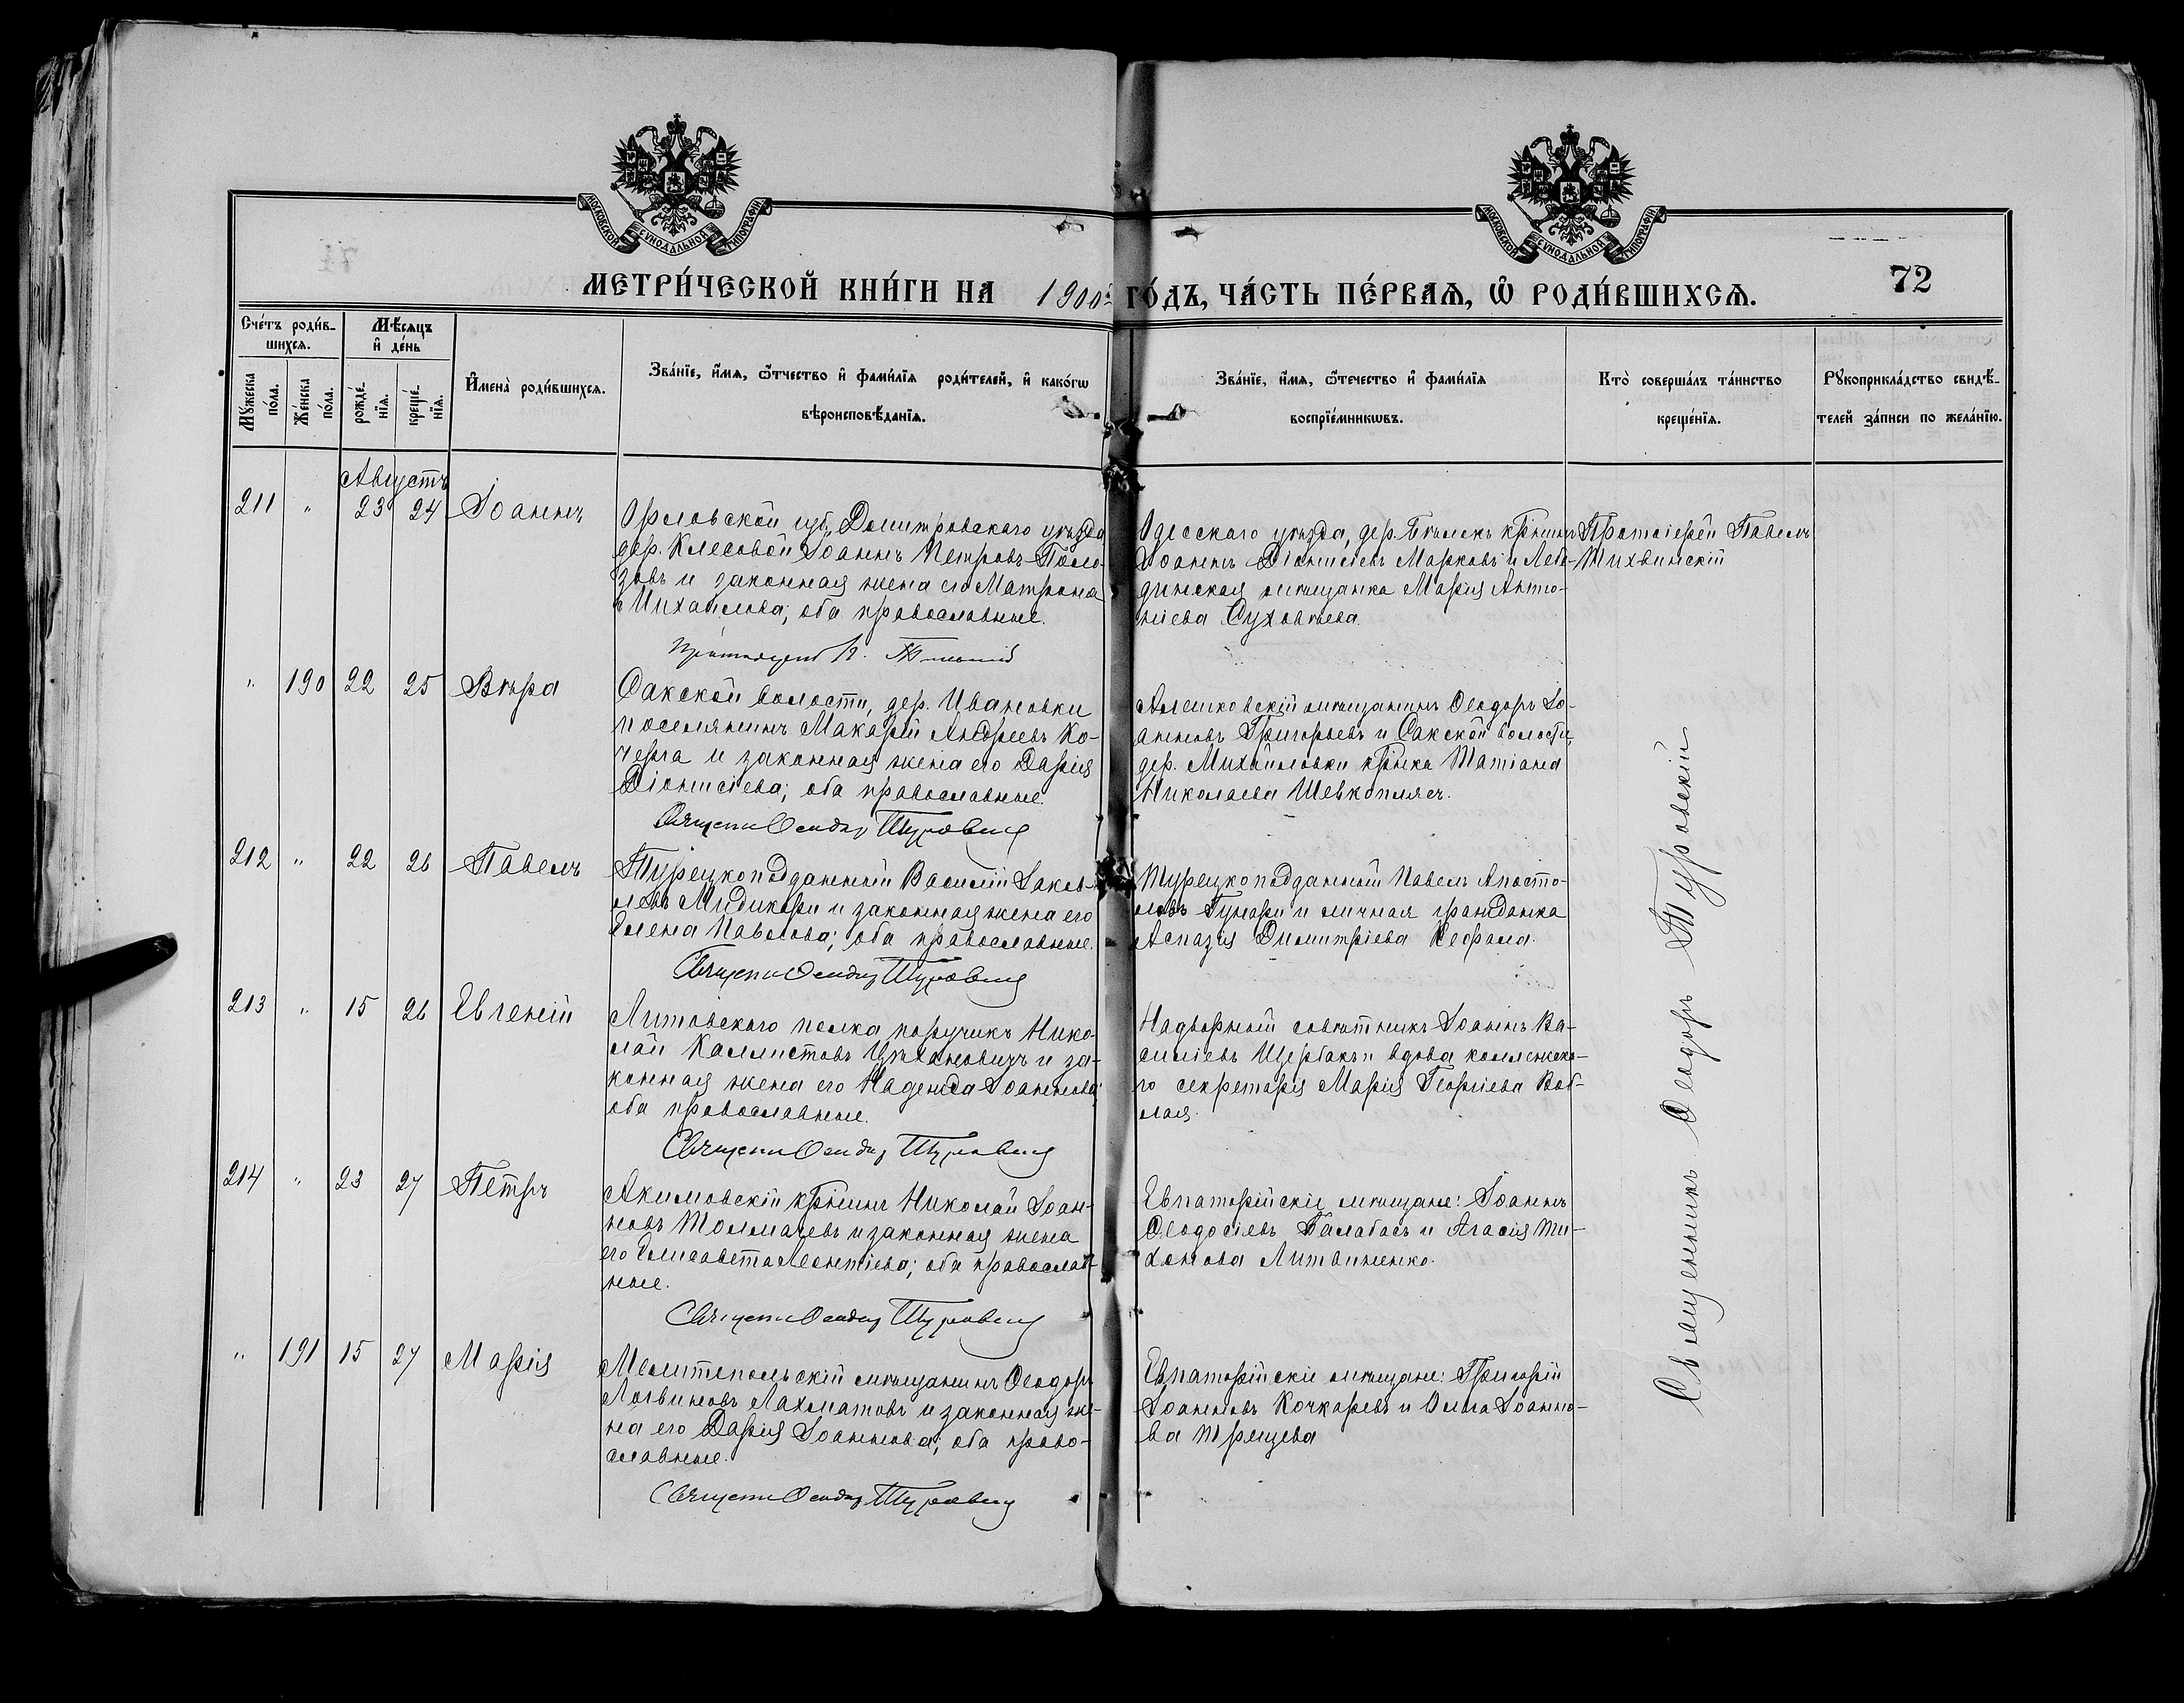 МОСКОВСКОЙ СѴНОДАЛЬНОЙ ТИПОГРАФІИ
МОСКОВСКОЙ СѴНОДАЛЬНОЙ ТИПОГРАФІИ
МЕТРИ́ЧЕСКОЙ КНИ́ГИ НА 1900й ГО́ДЪ, ЧА́СТЬ ПЕ́РВАѦ, Ѡ҆ РОДИ́ВШИХСѦ.
72
Сче́тъ роди́в-
шихсѧ.
Мѣ́сѧцъ
и҆ де́нь
Мꙋ́жеска
по́ла.
Же́нска
по́ла.
рожде́-
нїѧ.
креще́-
нїѧ.
И҆мена̀ роди́вшихсѧ.
Зва́нїе, и҆́мѧ, ѻ҆́тчество и҆ фами́лїѧ роди́телей, и҆ како́гѡ
вѣроисповѣ́данїѧ.
Зва́нїе, и҆́мѧ, ѻ҆́течество и҆ фами́лїѧ
воспрїе́мникѡвъ.
Кто̀ соверша́лъ та́инство
креще́нїѧ.
Рꙋкоприкла́дство свидѣ́-
телей за́писи по жела́нїю.
Августъ
211 " 23 24 Іоаннъ
Орловской губ., Дмитровскаго уѣзда
дер. Клесовой Іоаннъ Петровъ Поло-
зовъ и законная жена его Матрона
Михаилова; оба православные.
Протоіерей П.
Одесскаго уѣзда, дер. крнинъ
Іоаннъ Діонисіевъ Марковъ и Лебе-
динская мѣщанка Марія Анто-
ніева Суховѣева.
Протоіерей Павелъ
Тихвинскій
" 190 22 25 Вѣра
Сакской волости, дер. Ивановки
поселянинъ Макарій Андреевъ Ко-
черга и законная жена его Дарія
Діонисіева; оба православные.
Священ Ѳеодор Туровскій
Алешковскій мѣщанинъ Ѳеодоръ Іо-
анновъ Григорьевъ и Сакской волости,
дер. Михайловки крнка Татіана
Николаева Шевкоплясъ.
212 " 22 26 Павелъ
Турецкоподданный Василій Іаков-
левъ Мидикари и законная жена его
Елена Павлова; оба православные.
Священ Ѳеодор Туровскій
Турецкоподданный Павелъ Апосто-
ловъ Гунари и личная гражданка
Аспазія Димитріева Кефала.
213 " 15 26 Евгеній
Литовскаго полка поручикъ Нико-
лай Каллистовъ Цѣхановичъ и за-
конная жена его Надежда Іоаннова;
оба православные.
Священ Ѳеодор Туровскій
Надворный совѣтникъ Іоаннъ Ва-
силіевъ Щербакъ и вдова коллежска-
го секретаря Марія Георгіева Воб-
лая.
214 " 23 27 Петръ
Акимовскій крнинъ Николай Іоан-
новъ Толмачевъ и законная жена
его Елисавета Леонтіева; оба православ-
ные.
Священ Ѳеодор Туровскій
Евпаторійскіе мѣщане: Іоаннъ
Ѳеодосіевъ Балабасъ и Агасія Ти-
хонова Литвиненко.
" 191 15 27 Марія
Мелитопольскій мѣщанинъ Ѳеодоръ
Логвиновъ Лахматовъ и законная же-
на его Дарія Іоаннова; оба право-
славные.
Священ Ѳеодор Туровскій
Евпаторійскіе мѣщане: Григорій
Іоанновъ Кочкаревъ и Анна Іоанно-
ва
Священникъ Ѳеодоръ Туровскій